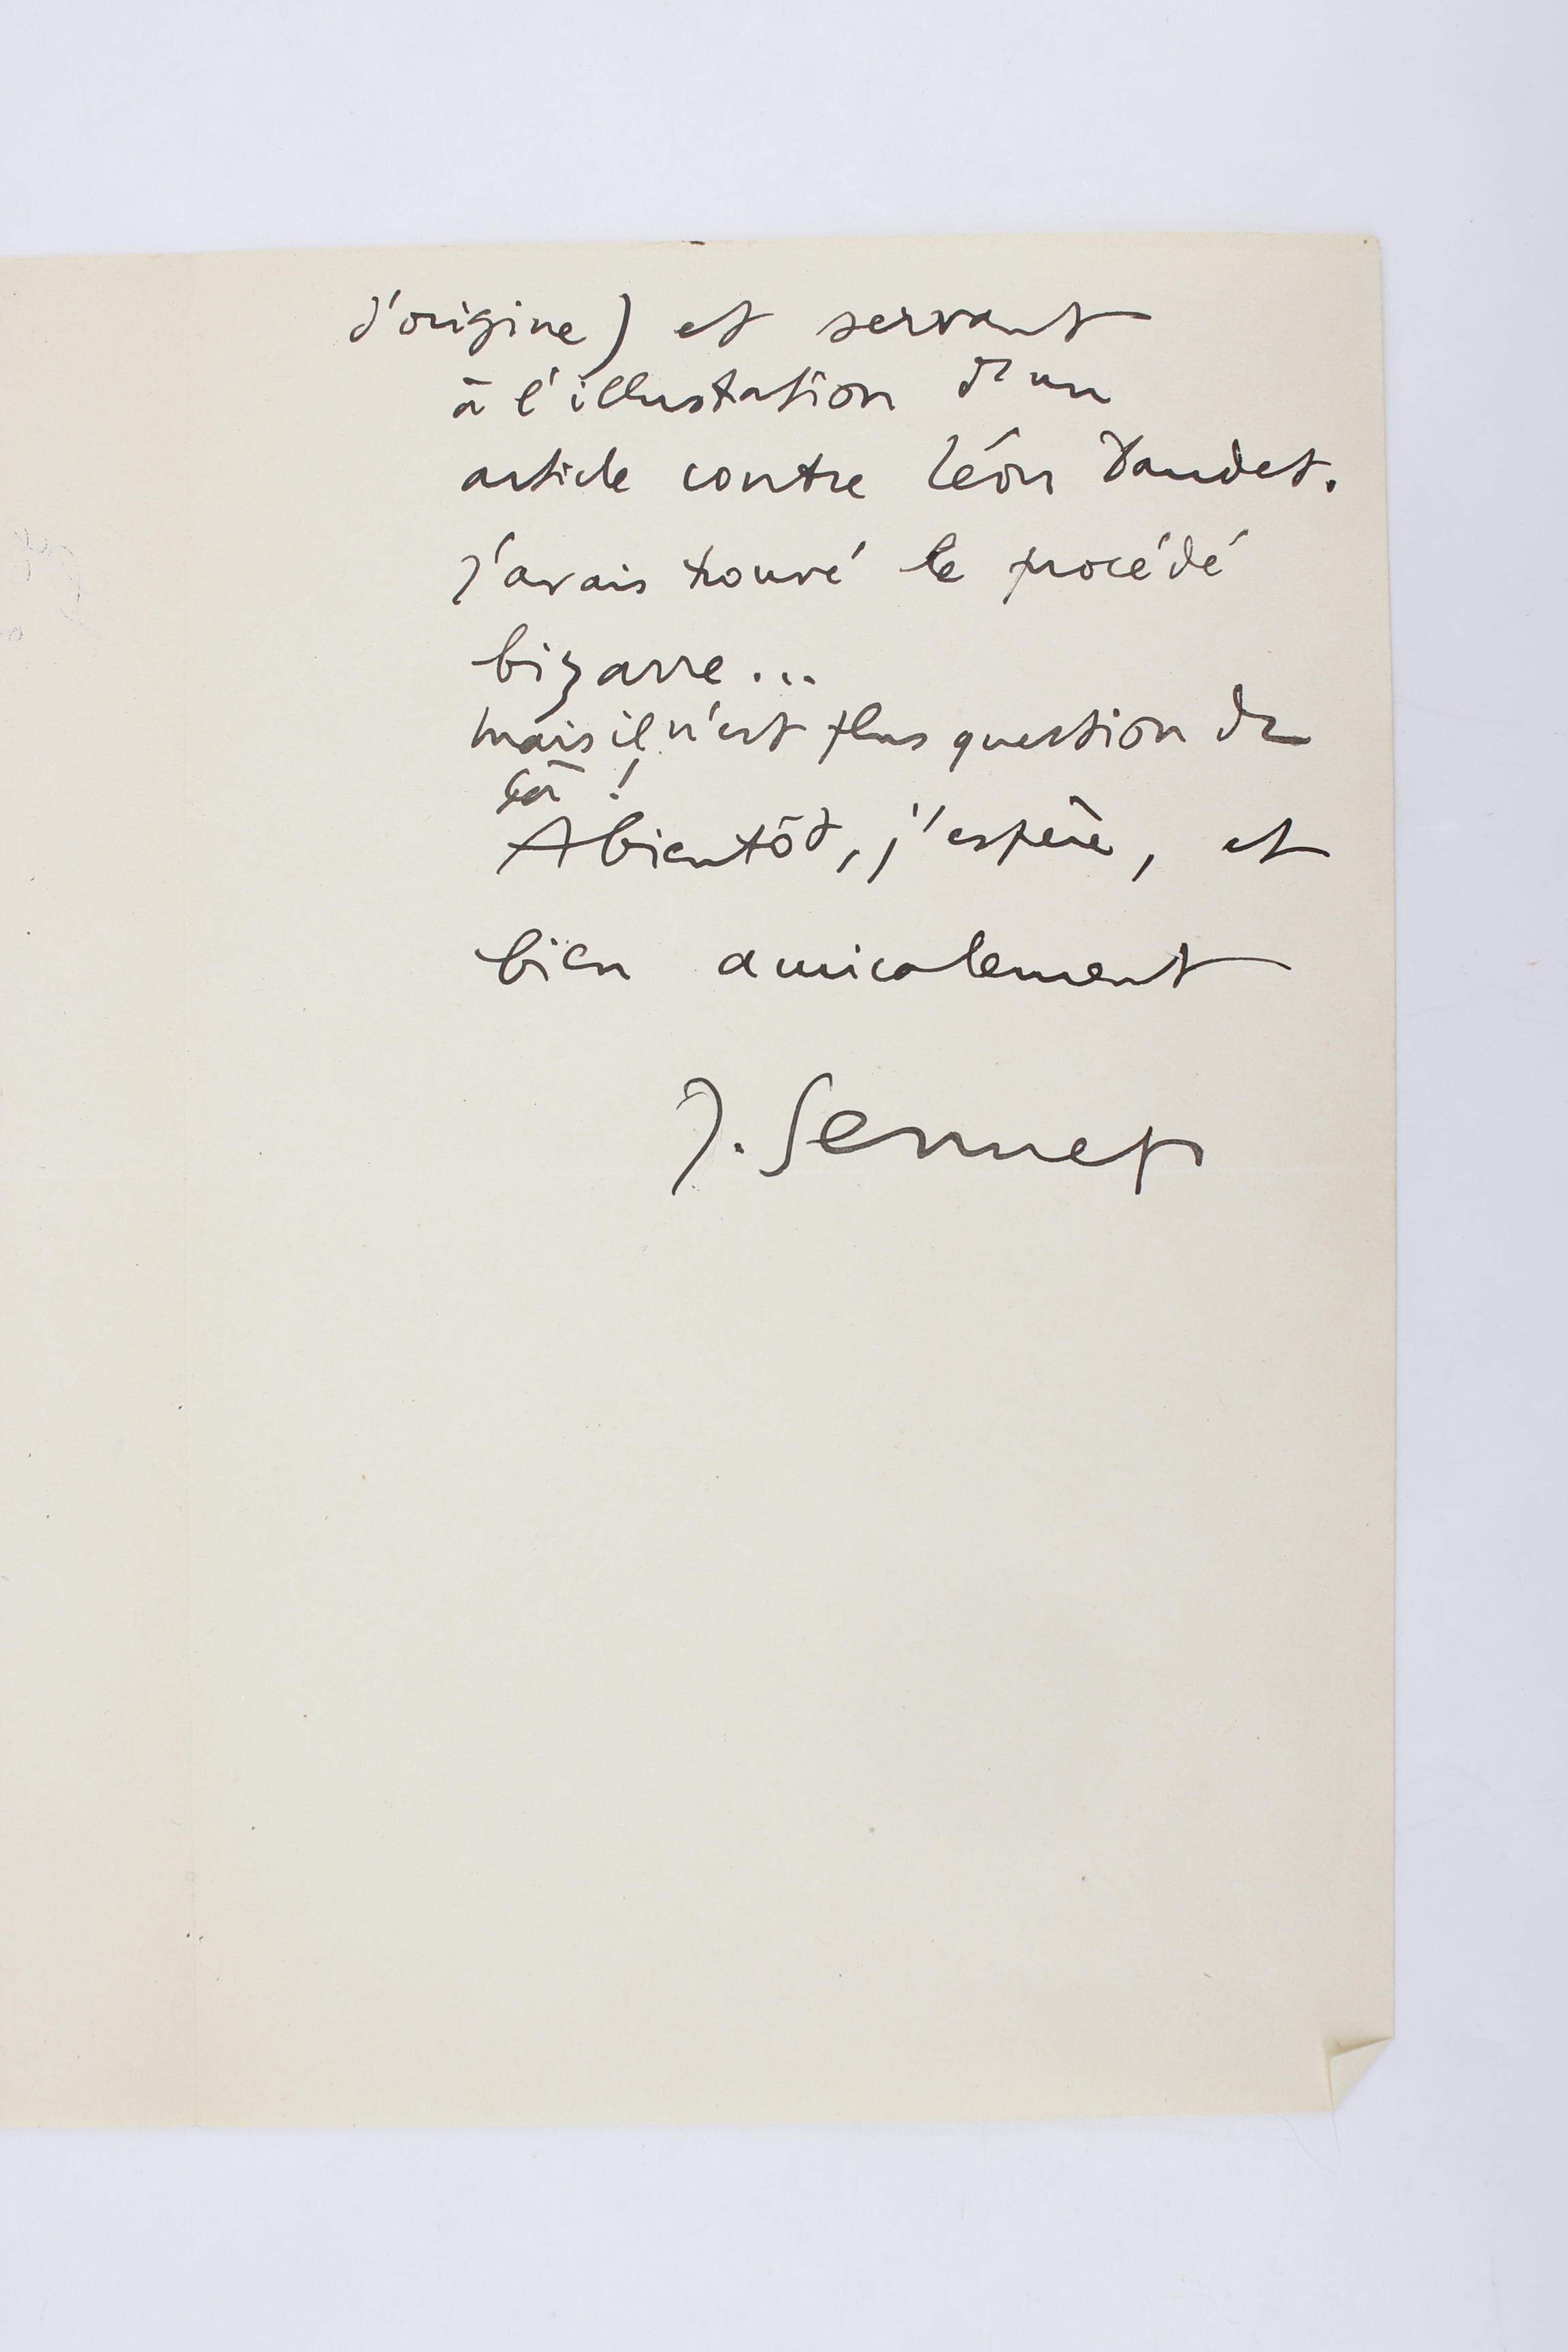 d'origine) et servant
à l'illustation d'un
article contre Léon Daudet.
J'avais trouvé le procédé
bizarre...
mais il n'est plus question de
ça !
A bientôt, j'espère, et
bien amicalement
J. Sennep